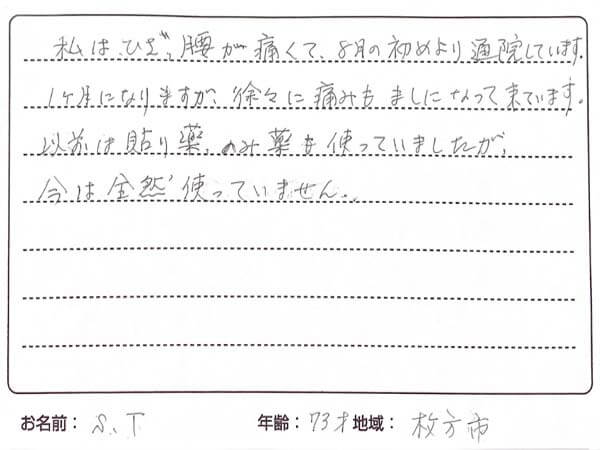 私は、ひざ、腰が痛くて、8月の初めより通院しています。
1ヶ月になりますが、徐々に痛みもましになって来ています。
以前は貼り薬、のみ薬を使っていましたが、
今は全然使っていません。
お名前： S.T 年齢：73才 地域： 枚方市